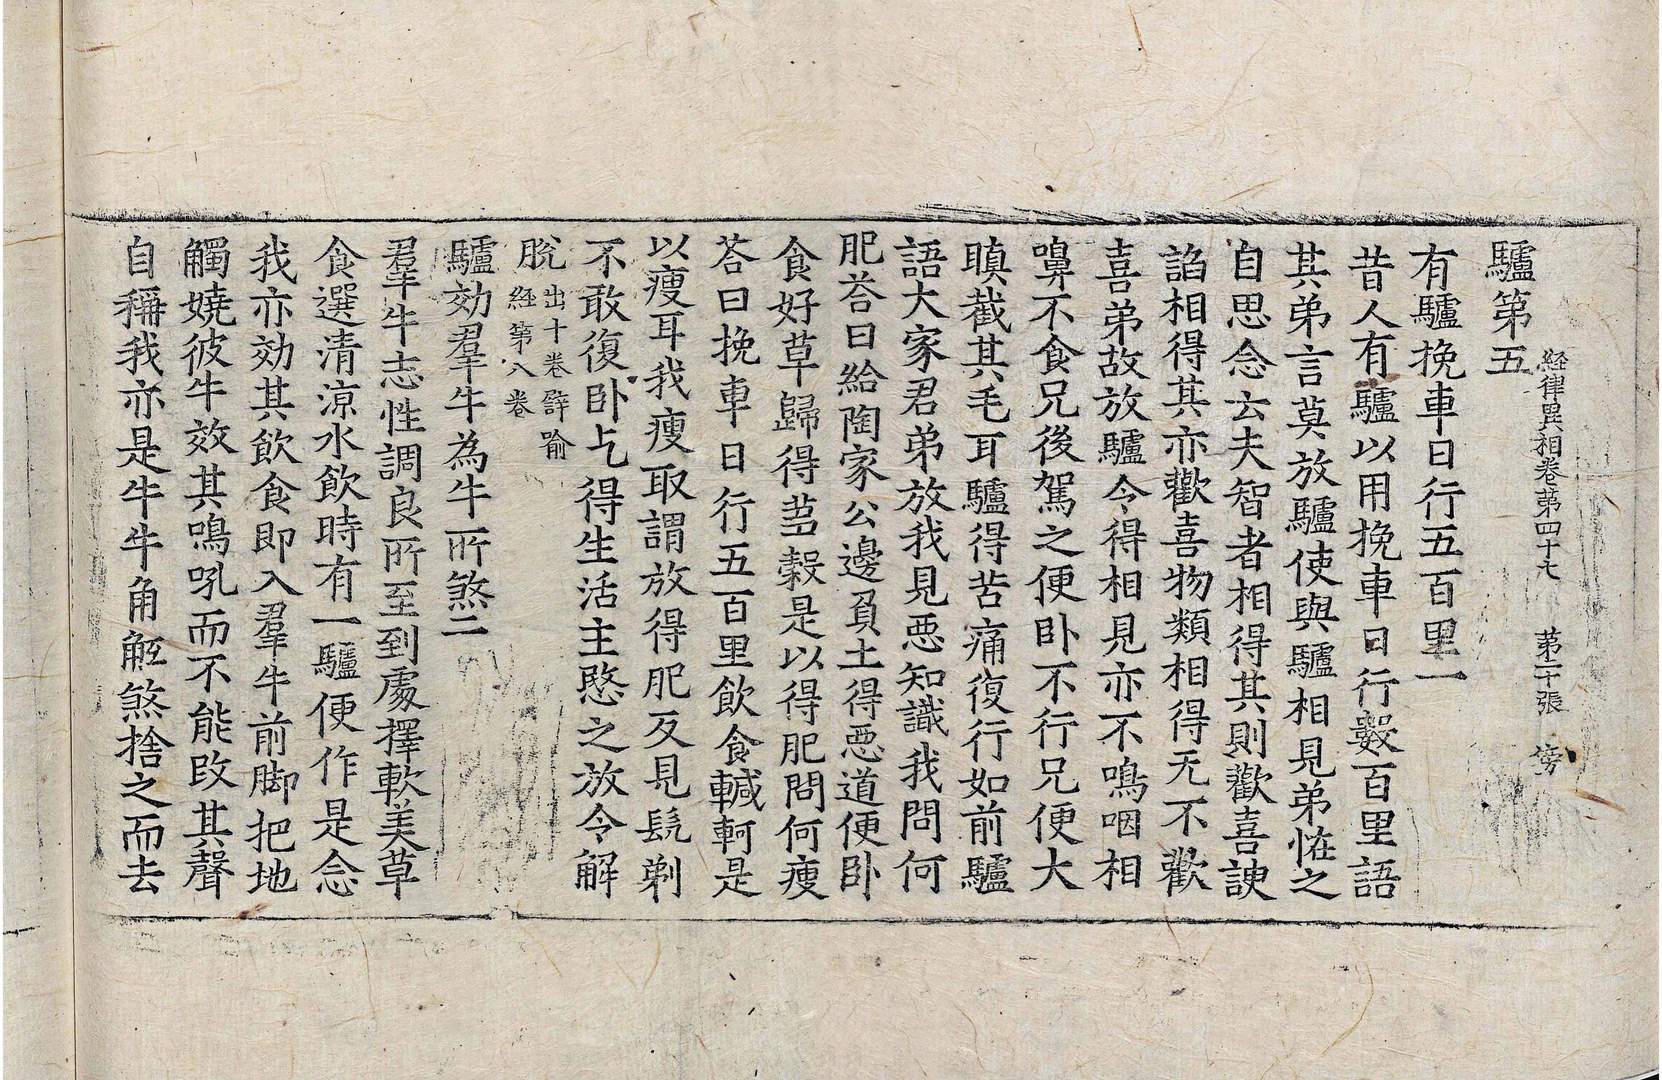 経律異相卷苐四十七 苐二十張 傍
驢第五
有驢挽車日行五百里一
昔人有驢以用挽車日行數百里語
其弟言莫放驢使與驢相見弟恠之
自思念云夫智者相得其則歡喜諛
諂相得其亦歡喜物類相得无不歡
喜弟故放驢令得相見亦不鳴咽相
嗅不食兄後駕之便卧不行兄便大
瞋截其毛耳驢得苦痛復行如前驢
語大家君弟放我見惡知識我問何
肥荅曰給陶家公邊負土得惡道便卧
食好草歸得蒭糓是以得肥問何瘦
荅曰挽車日行五百里飲食轗軻是
以瘦耳我瘦取謂放得肥反見髡剃
不敢復卧乞得生活主愍之放令解
脫出十卷辟喻
経第八卷
驢効羣牛為牛所煞二
羣牛志性調良所至到處擇軟美草
食選清涼水飲時有一驢便作是念
我亦効其飲食即入羣牛前脚把地
觸嬈彼牛效其鳴吼而不能改其聲
自稱我亦是牛牛角觝煞捨之而去